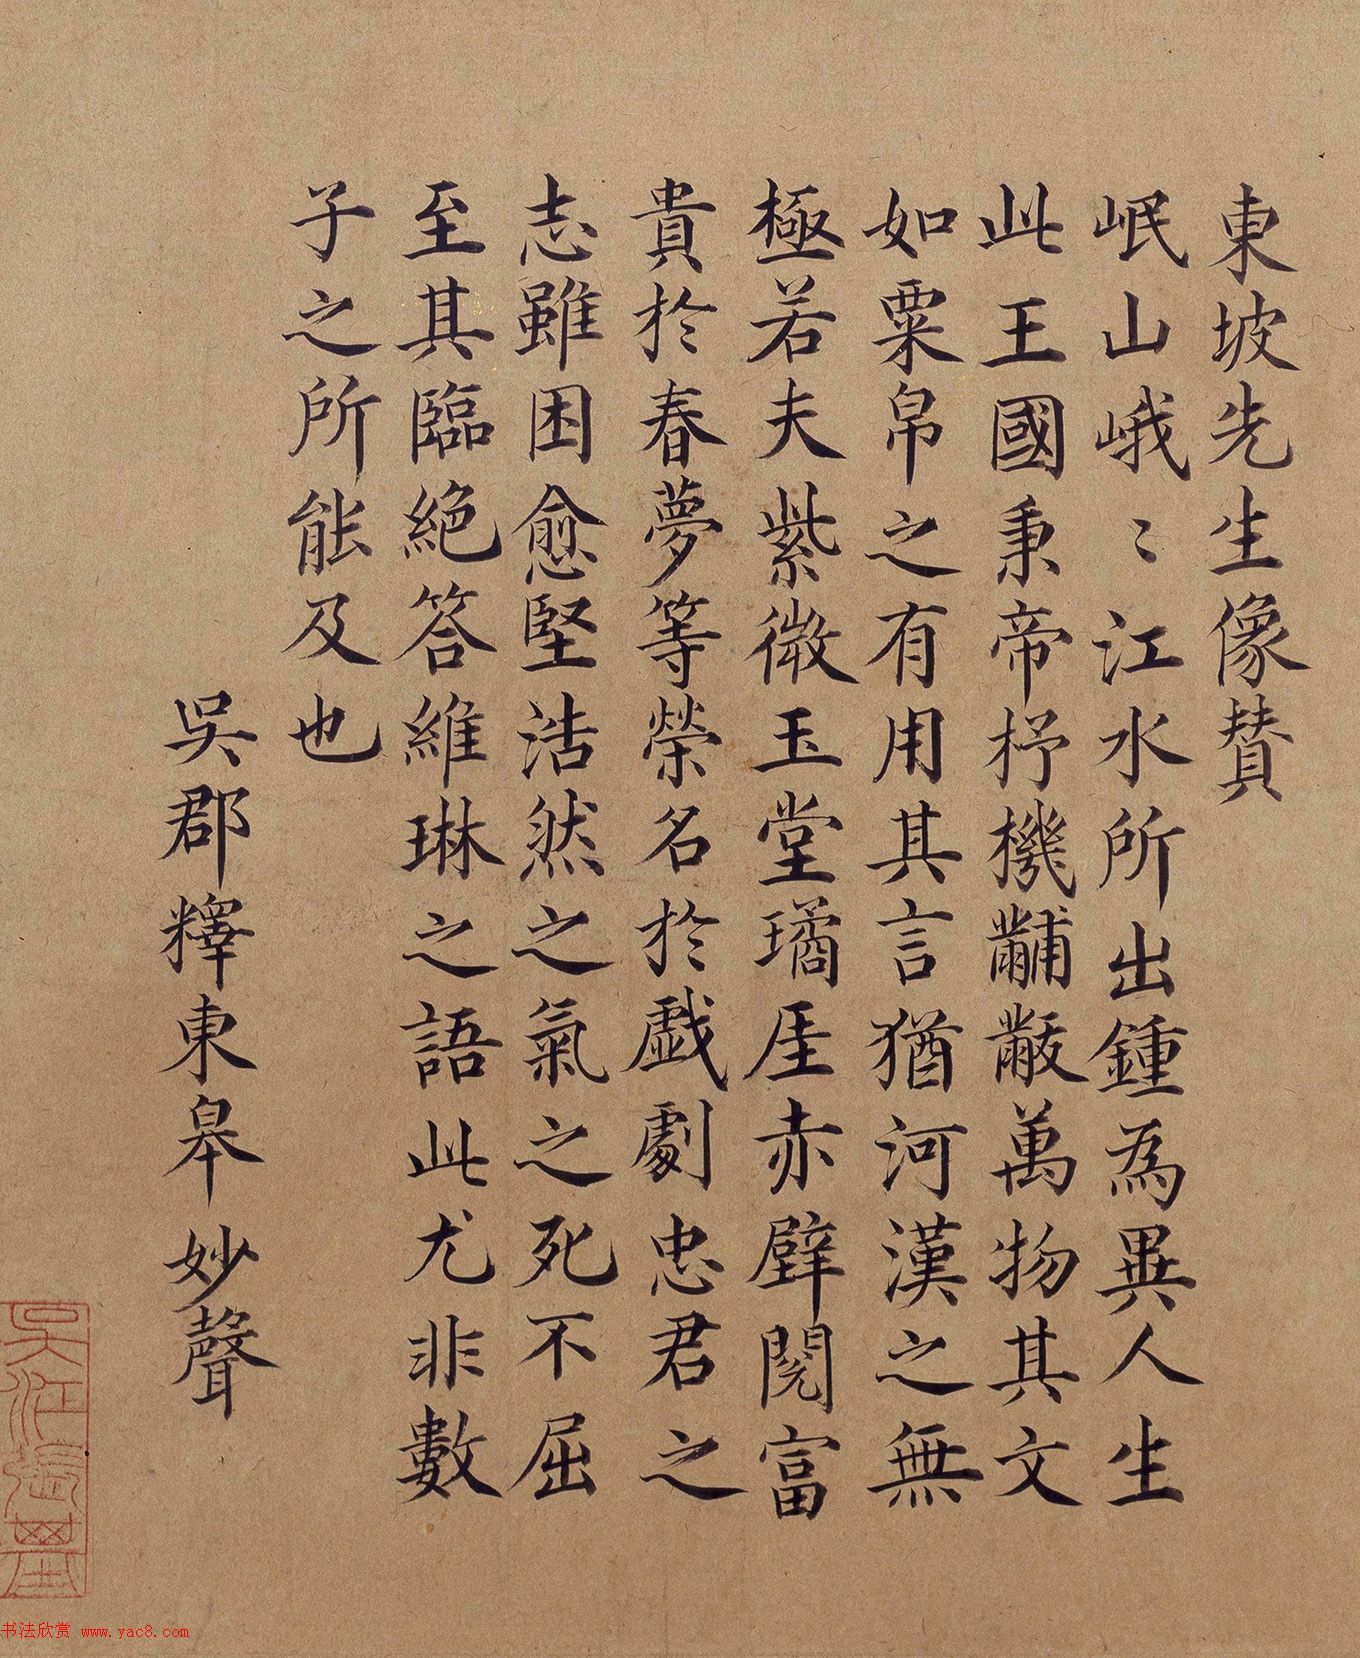 東坡先生像賛
岷山峨〻江水所出鍾為異人生
此王國秉帝杼機黼黻萬物其文
如粟帛之有用其言猶河漢之無
極若夫紫微玉堂瓊厓赤壁閱富
貴於春夢等榮名於戲劇忠君之
志雖困愈堅浩然之氣之死不屈
至其臨絕答維琳之語此尤非數
子之所能及也
吳郡釋東皋妙聲
吳江張
书法欣赏 www.yac8.com